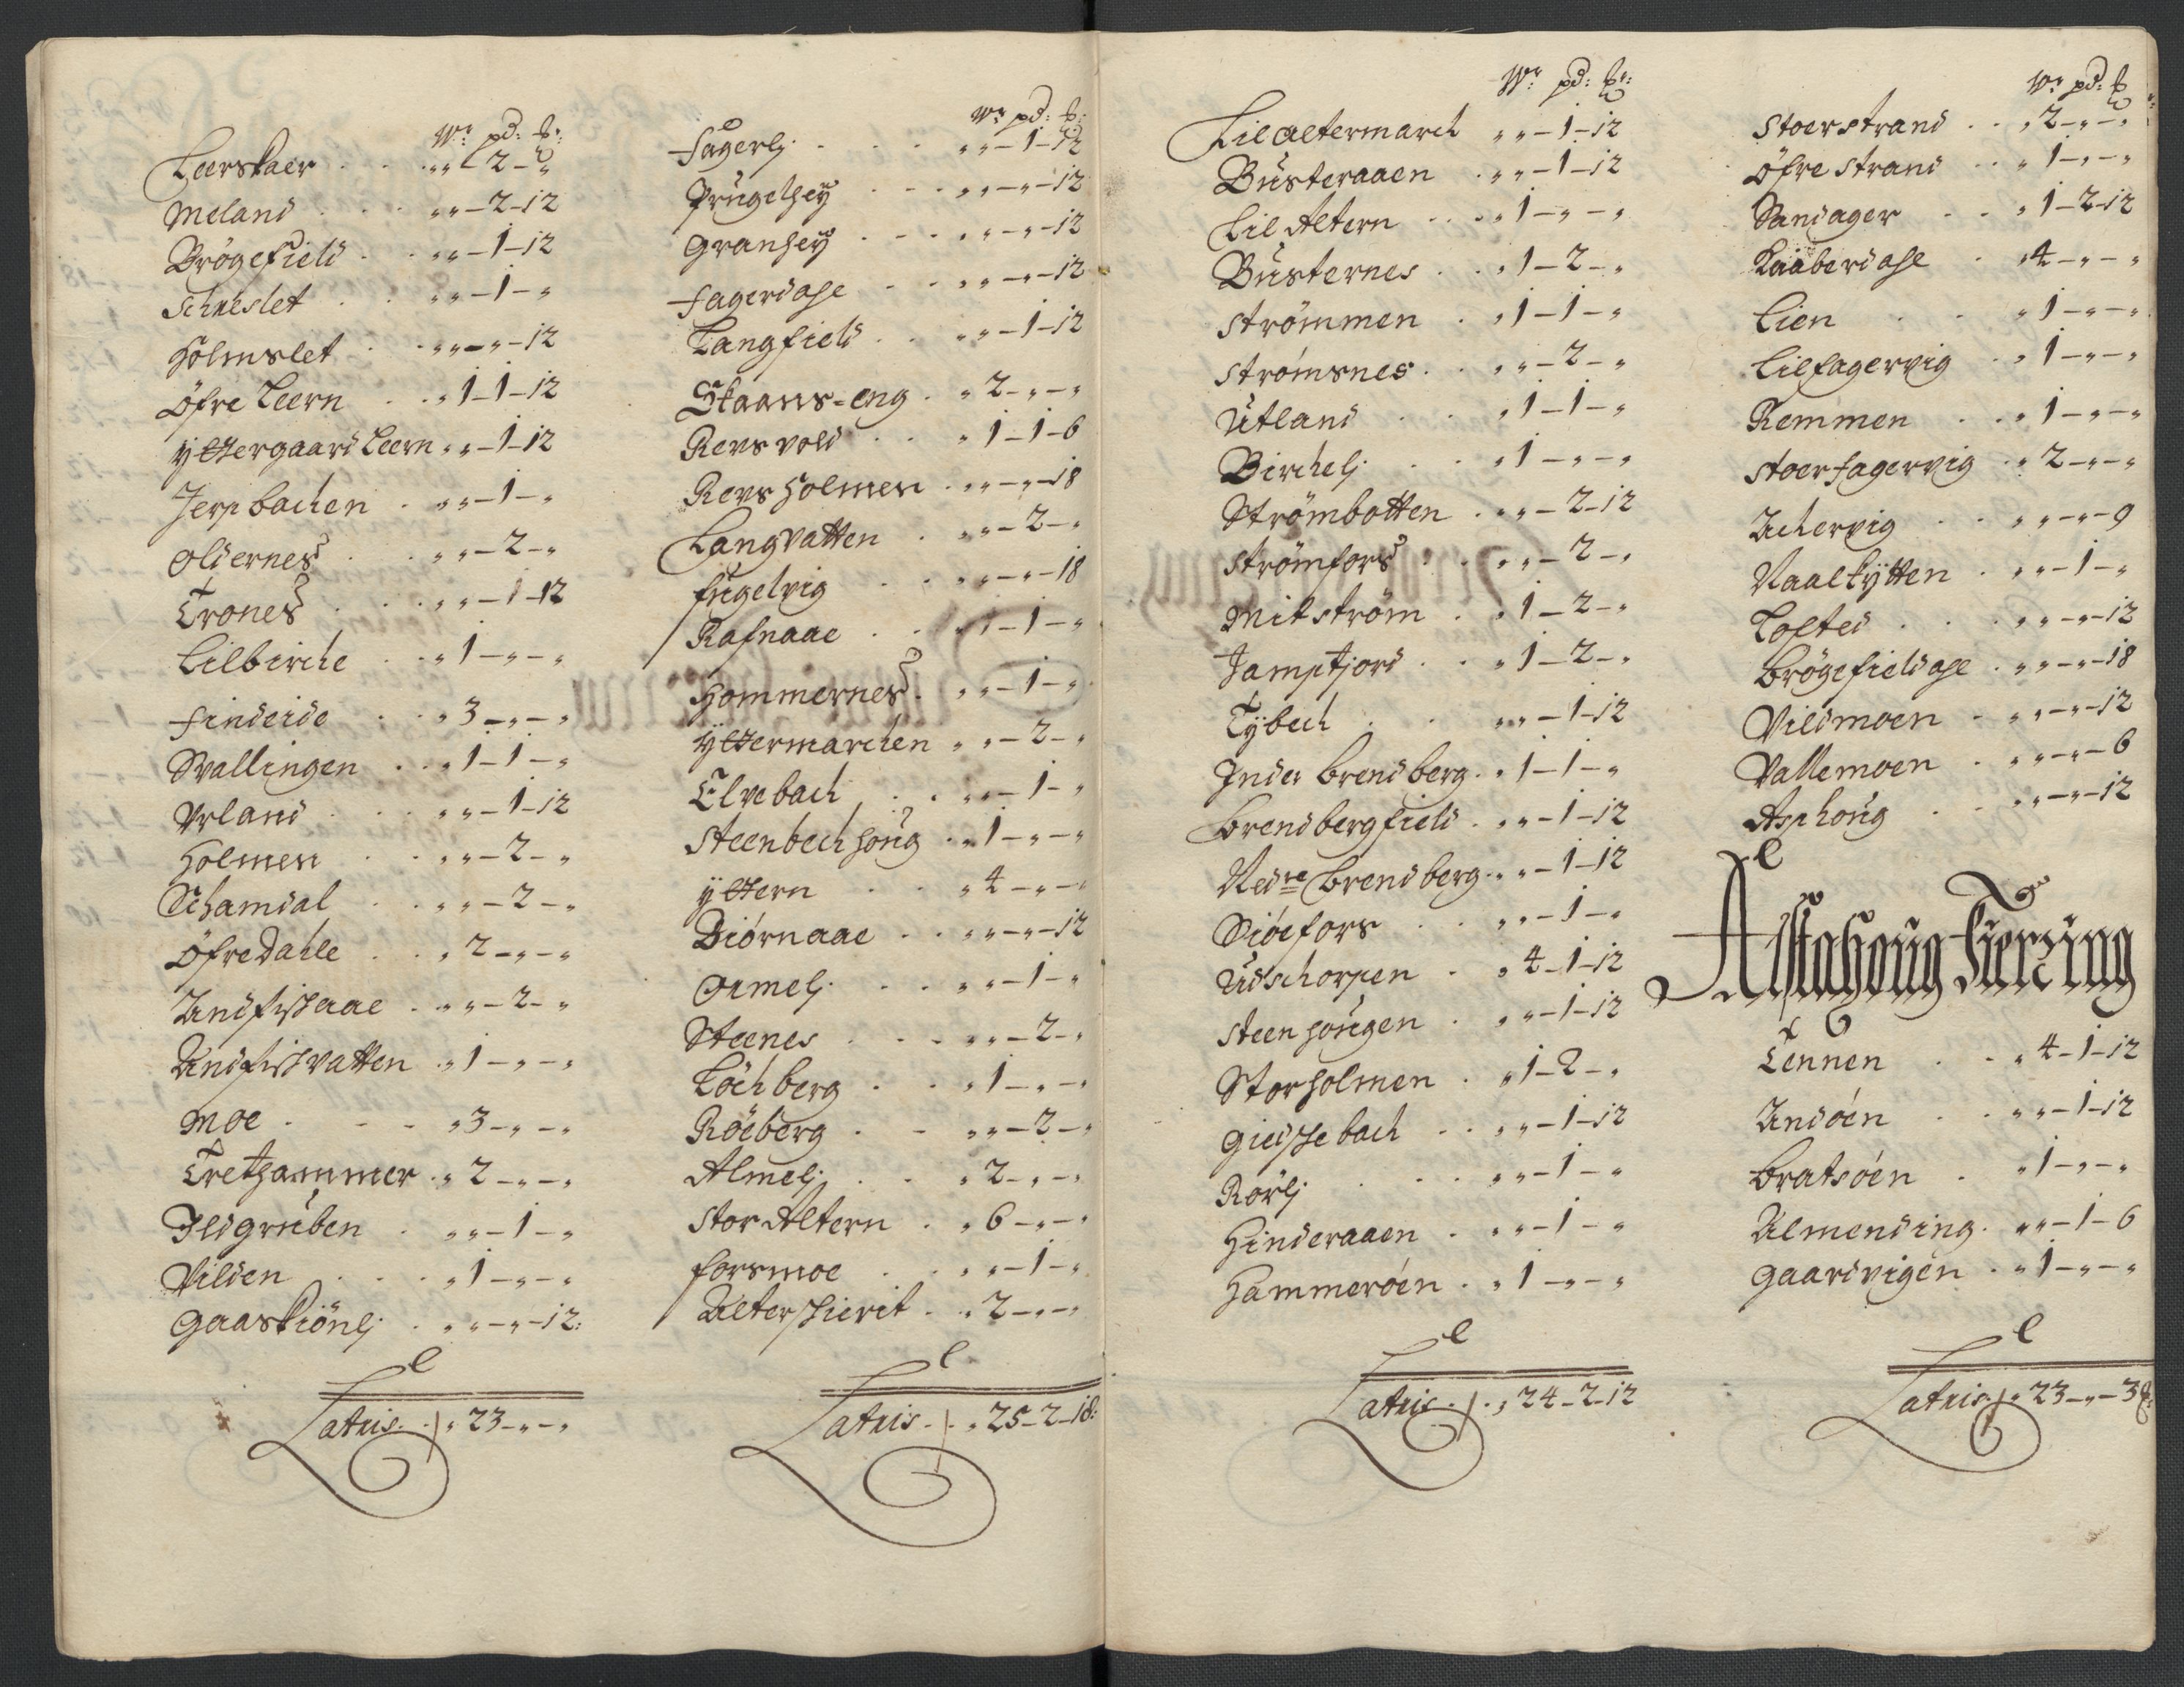 Wr pd: #:
Leerskaer . . . „ „ – 2 – „
Meland . . . „ „ – 2 – 12
Brögefield . . „ „ – 1 – 12
Schneslet . . „ „ – 1 – „
Holmslet . . „ „ – „ – 12
Öfre Leern . . „ 1 – 1 – 12
Yttergaard Leern „ „ – 1 – 12
Jerpbachen . „ „ – 1 – „
Oldernes . . „ „ – 2 – „
Trones . . . „ „ – 1 – 12
Lilbirche . . „ 1 – „ – „
Findeide . . „ 3 – „ – „
Svallingen . . „ 1 – 1 – „
Urland . . . „ „ – 1 – 12
Holmen . . „ „ – 2 – „
Schamdal . . „ „ – 2 – „
Öfre Dahle . . „ 2 – „ – „
Andfisaae . „ „ – 2 – „
Andfisvatten . „ 1 – „ – „
Moe . . . „ 3 – „ – „
Trethammer . „ 2 – „ – „
Ildgruben . „ „ – 1 – „
Vilden . . . „ 1 – „ – „
Gaaskiönlj . „ „ – „ – 12:
Latris . „ 23 – „ – „
Wr pd: #:
Fagerlj . . . „ „ – 1 – 12
Prugelhey . . „ „ – „ – 12
Granhey . . . „ „ – „ – 12
Fagerdahl . . „ „ – „ – 12
Langfield . . „ „ – 1 – 12
Skaans-eng . „ 2 – „ – „
Revsvold . . „ 1 – 1 – 6
Revsholmen . „ „ – „ – 18
Langvatten . „ „ – 2 – „
Fugelvig . . „ „ – „ – 18
Rafnaae . . „ 1 – 1 – „
Hommernes . „ „ – 1 – „
Yttermarchen „ „ – 2 – „
Elvebach . . „ „ – 1 – „
Steenbechhoug . „ 1 – „ – „
Yttern . . „ 4 – „ – „
Biörnaae . . „ „ – „ – 12
Ormelj . . . „ „ – 1 – „
Steenes . . . „ „ – 2 – „
Löchberg . . „ 1 – „ – „
Röeberg . . „ „ – 2 – „
Almelj . . . „ 2 – „ – „
Stor Altern . „ 6 – „ – „
Forsmoe . . . „ „ – 1 – „
Alterskierit . „ 2 – „ – „
Latris . „ 25 – 2 – 18:
Wr pd: #:
Lilaltermarch „ „ – 1 – 12
Busteraaen . „ „ – 1 – 12
Lil Altern . . . „ 1 – „ – „
Busternes . . „ 1 – 2 – „
Strömmen . „ 1 – 1 – „
Strömsnes . . „ „ – 2 – „
Utland . . „ 1 – 1 – „
Birchelj . . . „ 1 – „ – „
Strömbotten . „ „ – 2 – 12
Strömfors . . „ „ – 2 – „
Mitström . „ 1 – 2 – „
Jamptjord . . „ 1 – 2 – „
Tybech . . „ „ – 1 – 12
Inder Brendberg . „ 1 – 1 – „
Brendbergfield . „ „ – 1 – 12
Nedre Brendberg . „ „ – 1 – 12
Siöefors . . „ „ – 1 – „
Udschorpen . „ 4 – 1 – 12
Steenhougen . „ „ – 1 – 12
Storholmen . „ 1 – 2 – „
Giedssebach . . „ „ – 1 – 12
Rörlj . . . „ „ – 1 – „
Hinderaaen . „ „ – 1 – „
Hammeröen . „ 1 – „ – „
Latris . „ 24 – 2 – 12
Wr pd: #:
Stoerstrand . . „ 2 – „ – „
Öfre Strand . . „ 1 – „ – „
Sandager . . „ 1 – 2 – 12
Raaberdahl . „ 4 – „ – „
Lien . . „ 1 – „ – „
Lilfagervig . . „ 1 – „ – „
Remmen . . „ 1 – „ – „
Stoerfagervig . „ 2 – „ – „
Achervig . . „ „ – „ – 9
Naalkytten . „ „ – 1 – „
Tofted . . . „ „ – „ – 12
Brögefieldahl . „ „ – „ – 18
Vildmoen . „ „ – „ – 12
Vallemoen . „ „ – „ – 6
Asphoug . . „ „ – „ – 12
Alstahoug Fierding
Tennen . . „ 4 – 1 – 12
Andöen . . „ „ – 1 – 12
Bratsöen . „ 1 – „ – „
Almending . „ „ – 1 – 6
Gaardvigen . „ 1 – „ – „
Latris . „ 23 – „ – 3#: